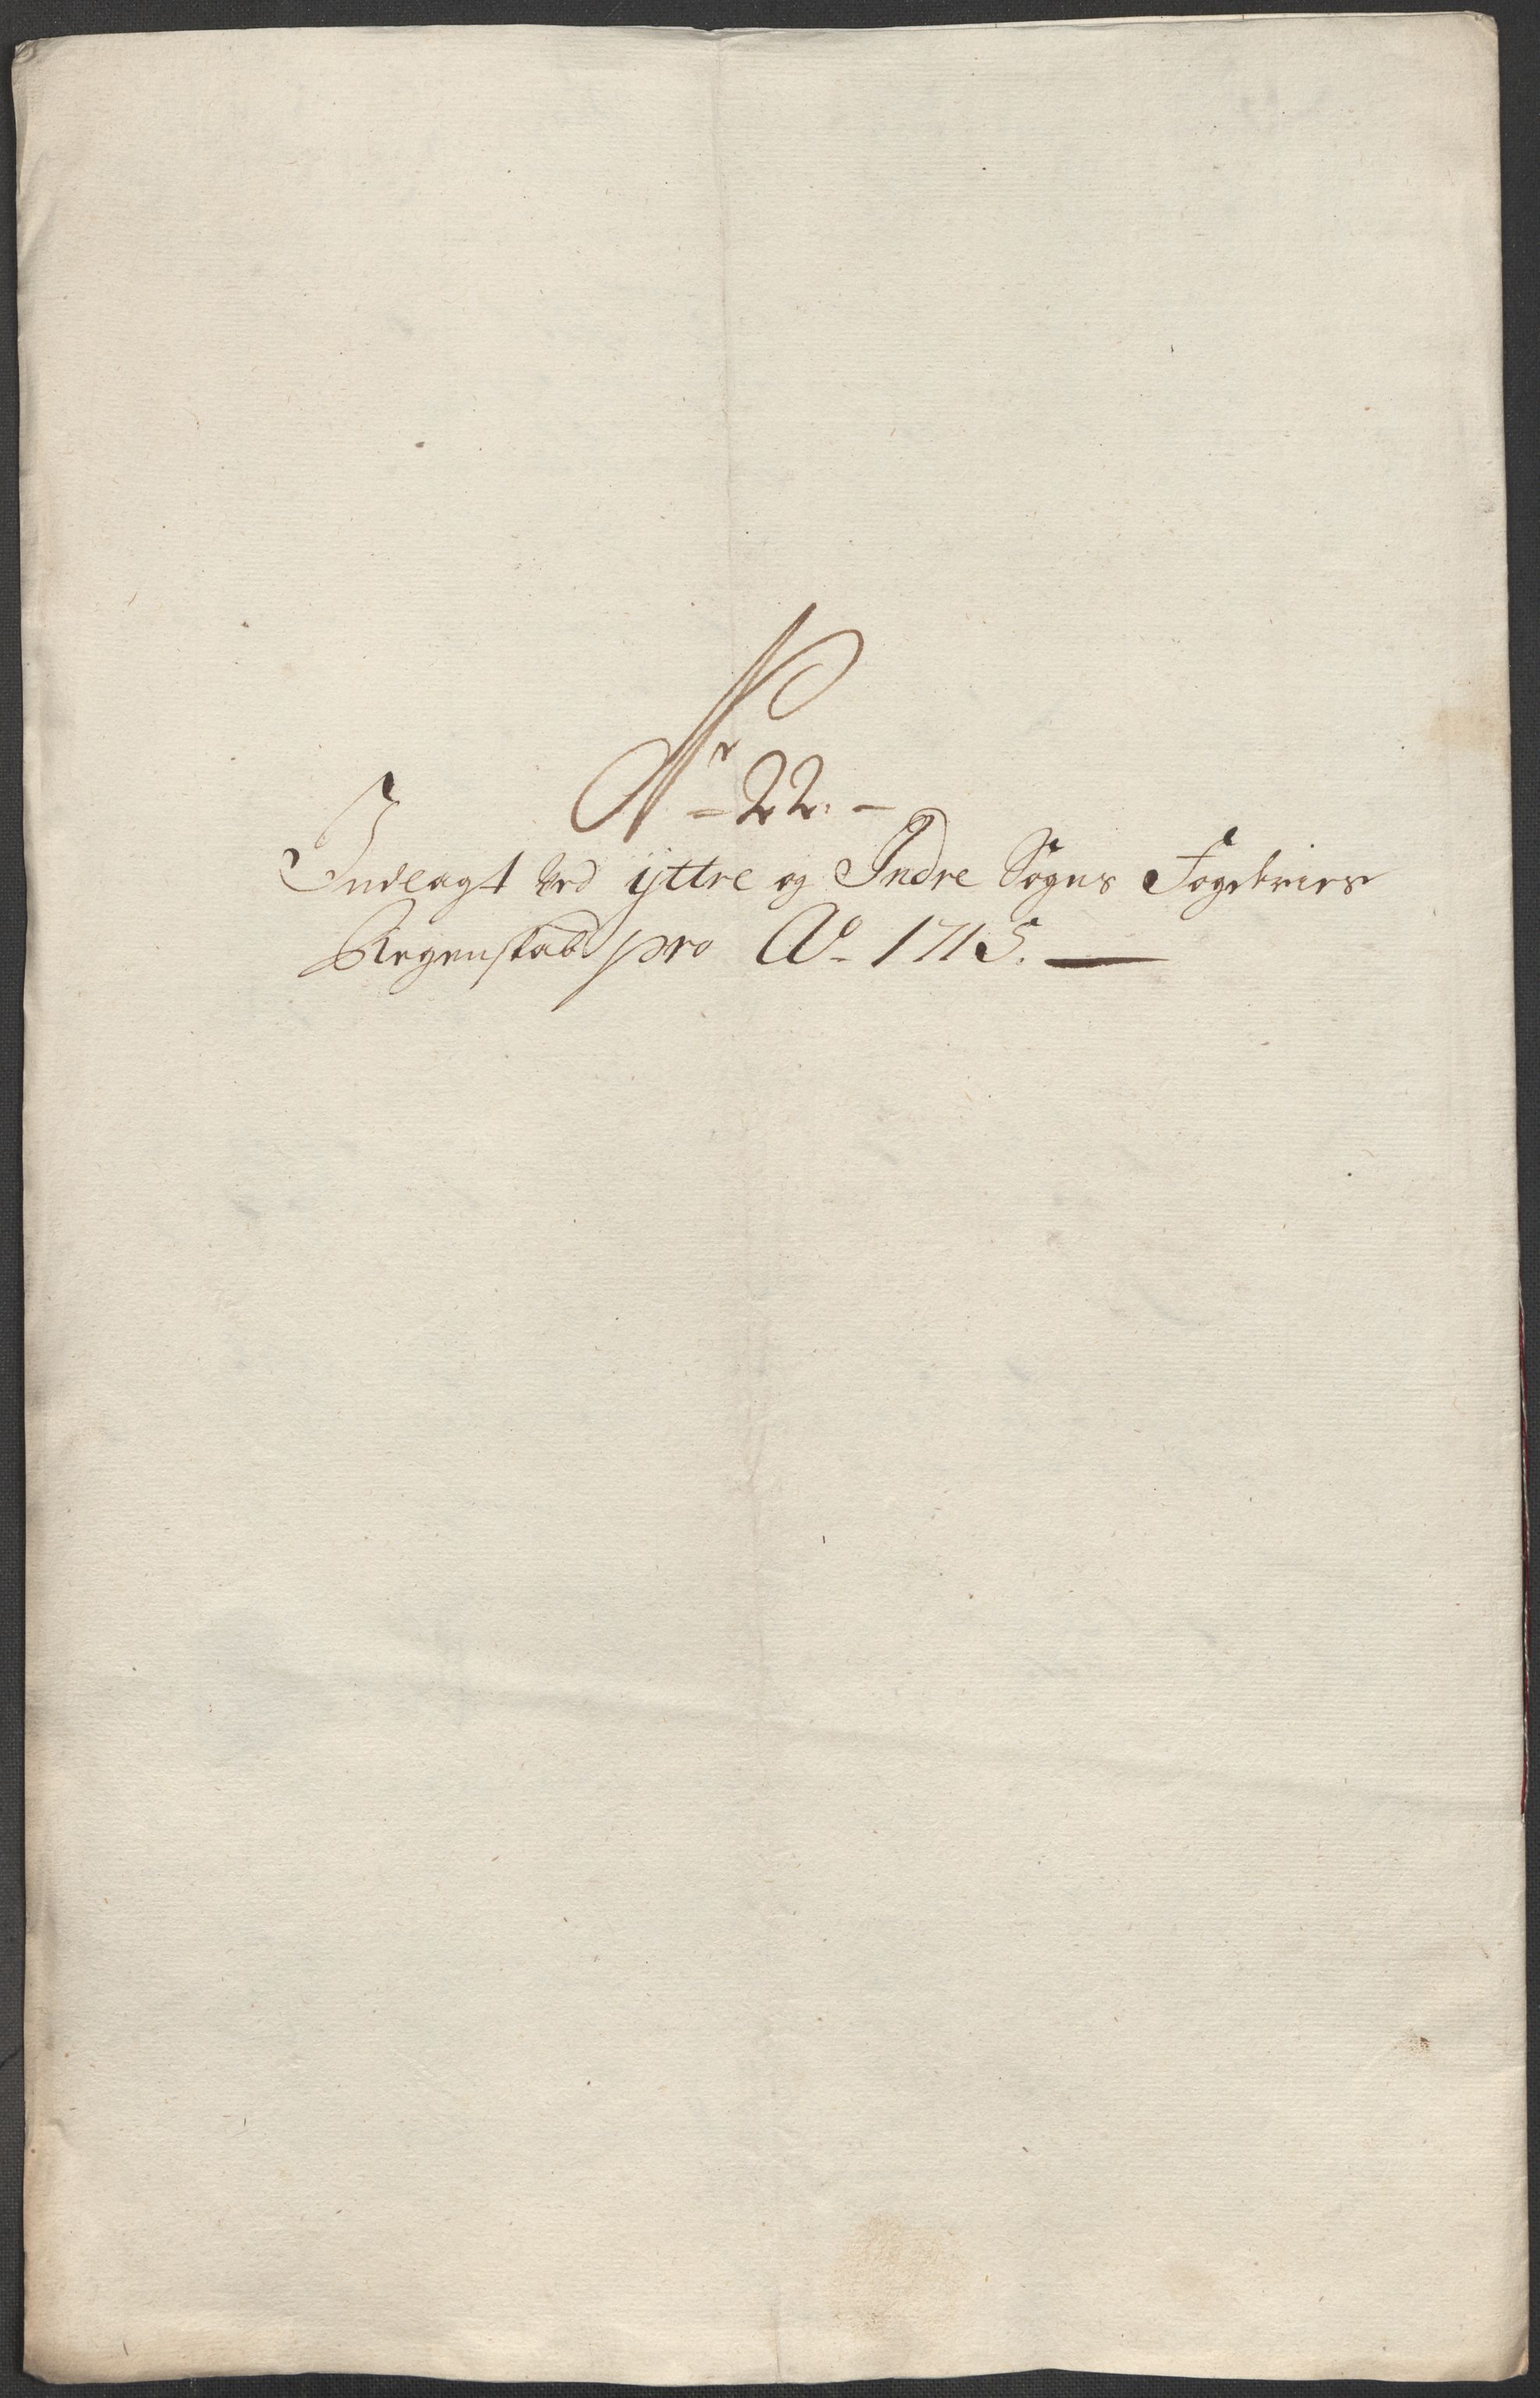 Nr 22. –
Indlagt ved ÿttre og Indre Sogns Fogderiers
Regenskab pro Ao 1715. —